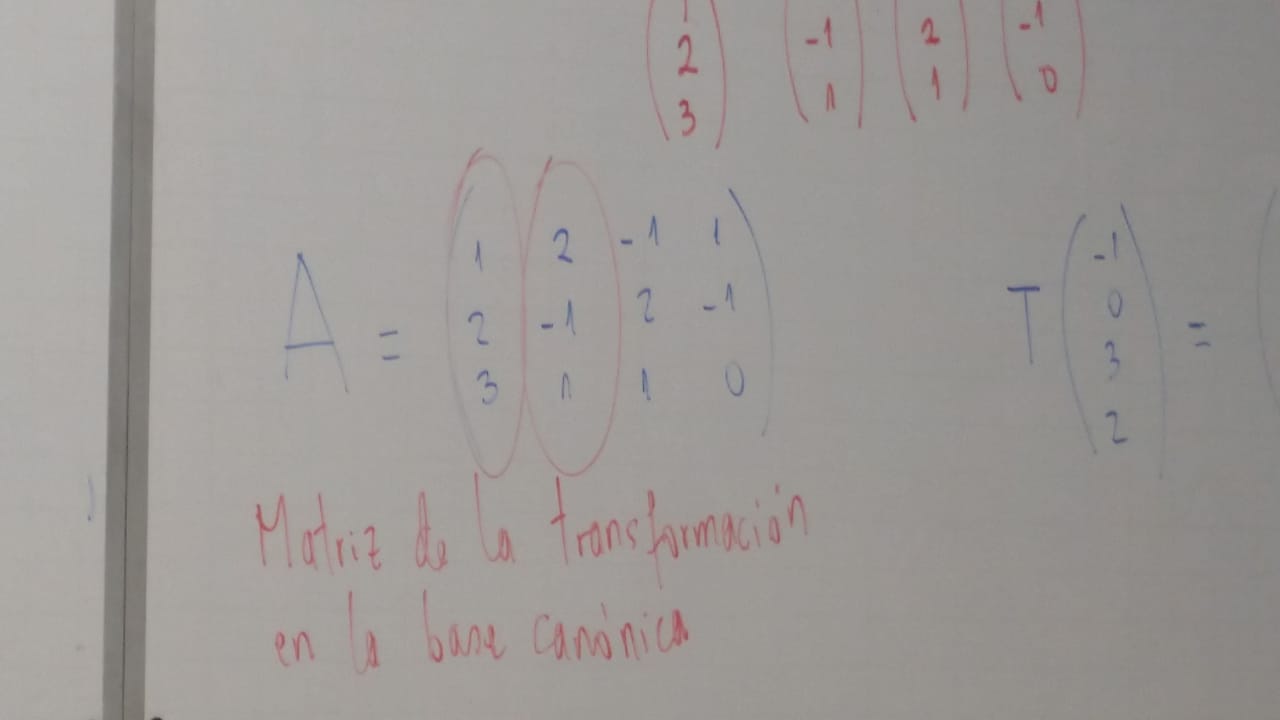 1 -1 2 -1
2 1 1 0
3
A = ( 1 2 -1 1
2 -1 2 -1
3 1 1 0 )
T ( -1
0
3
2 ) =
Matriz de la transformación
en la base canónica